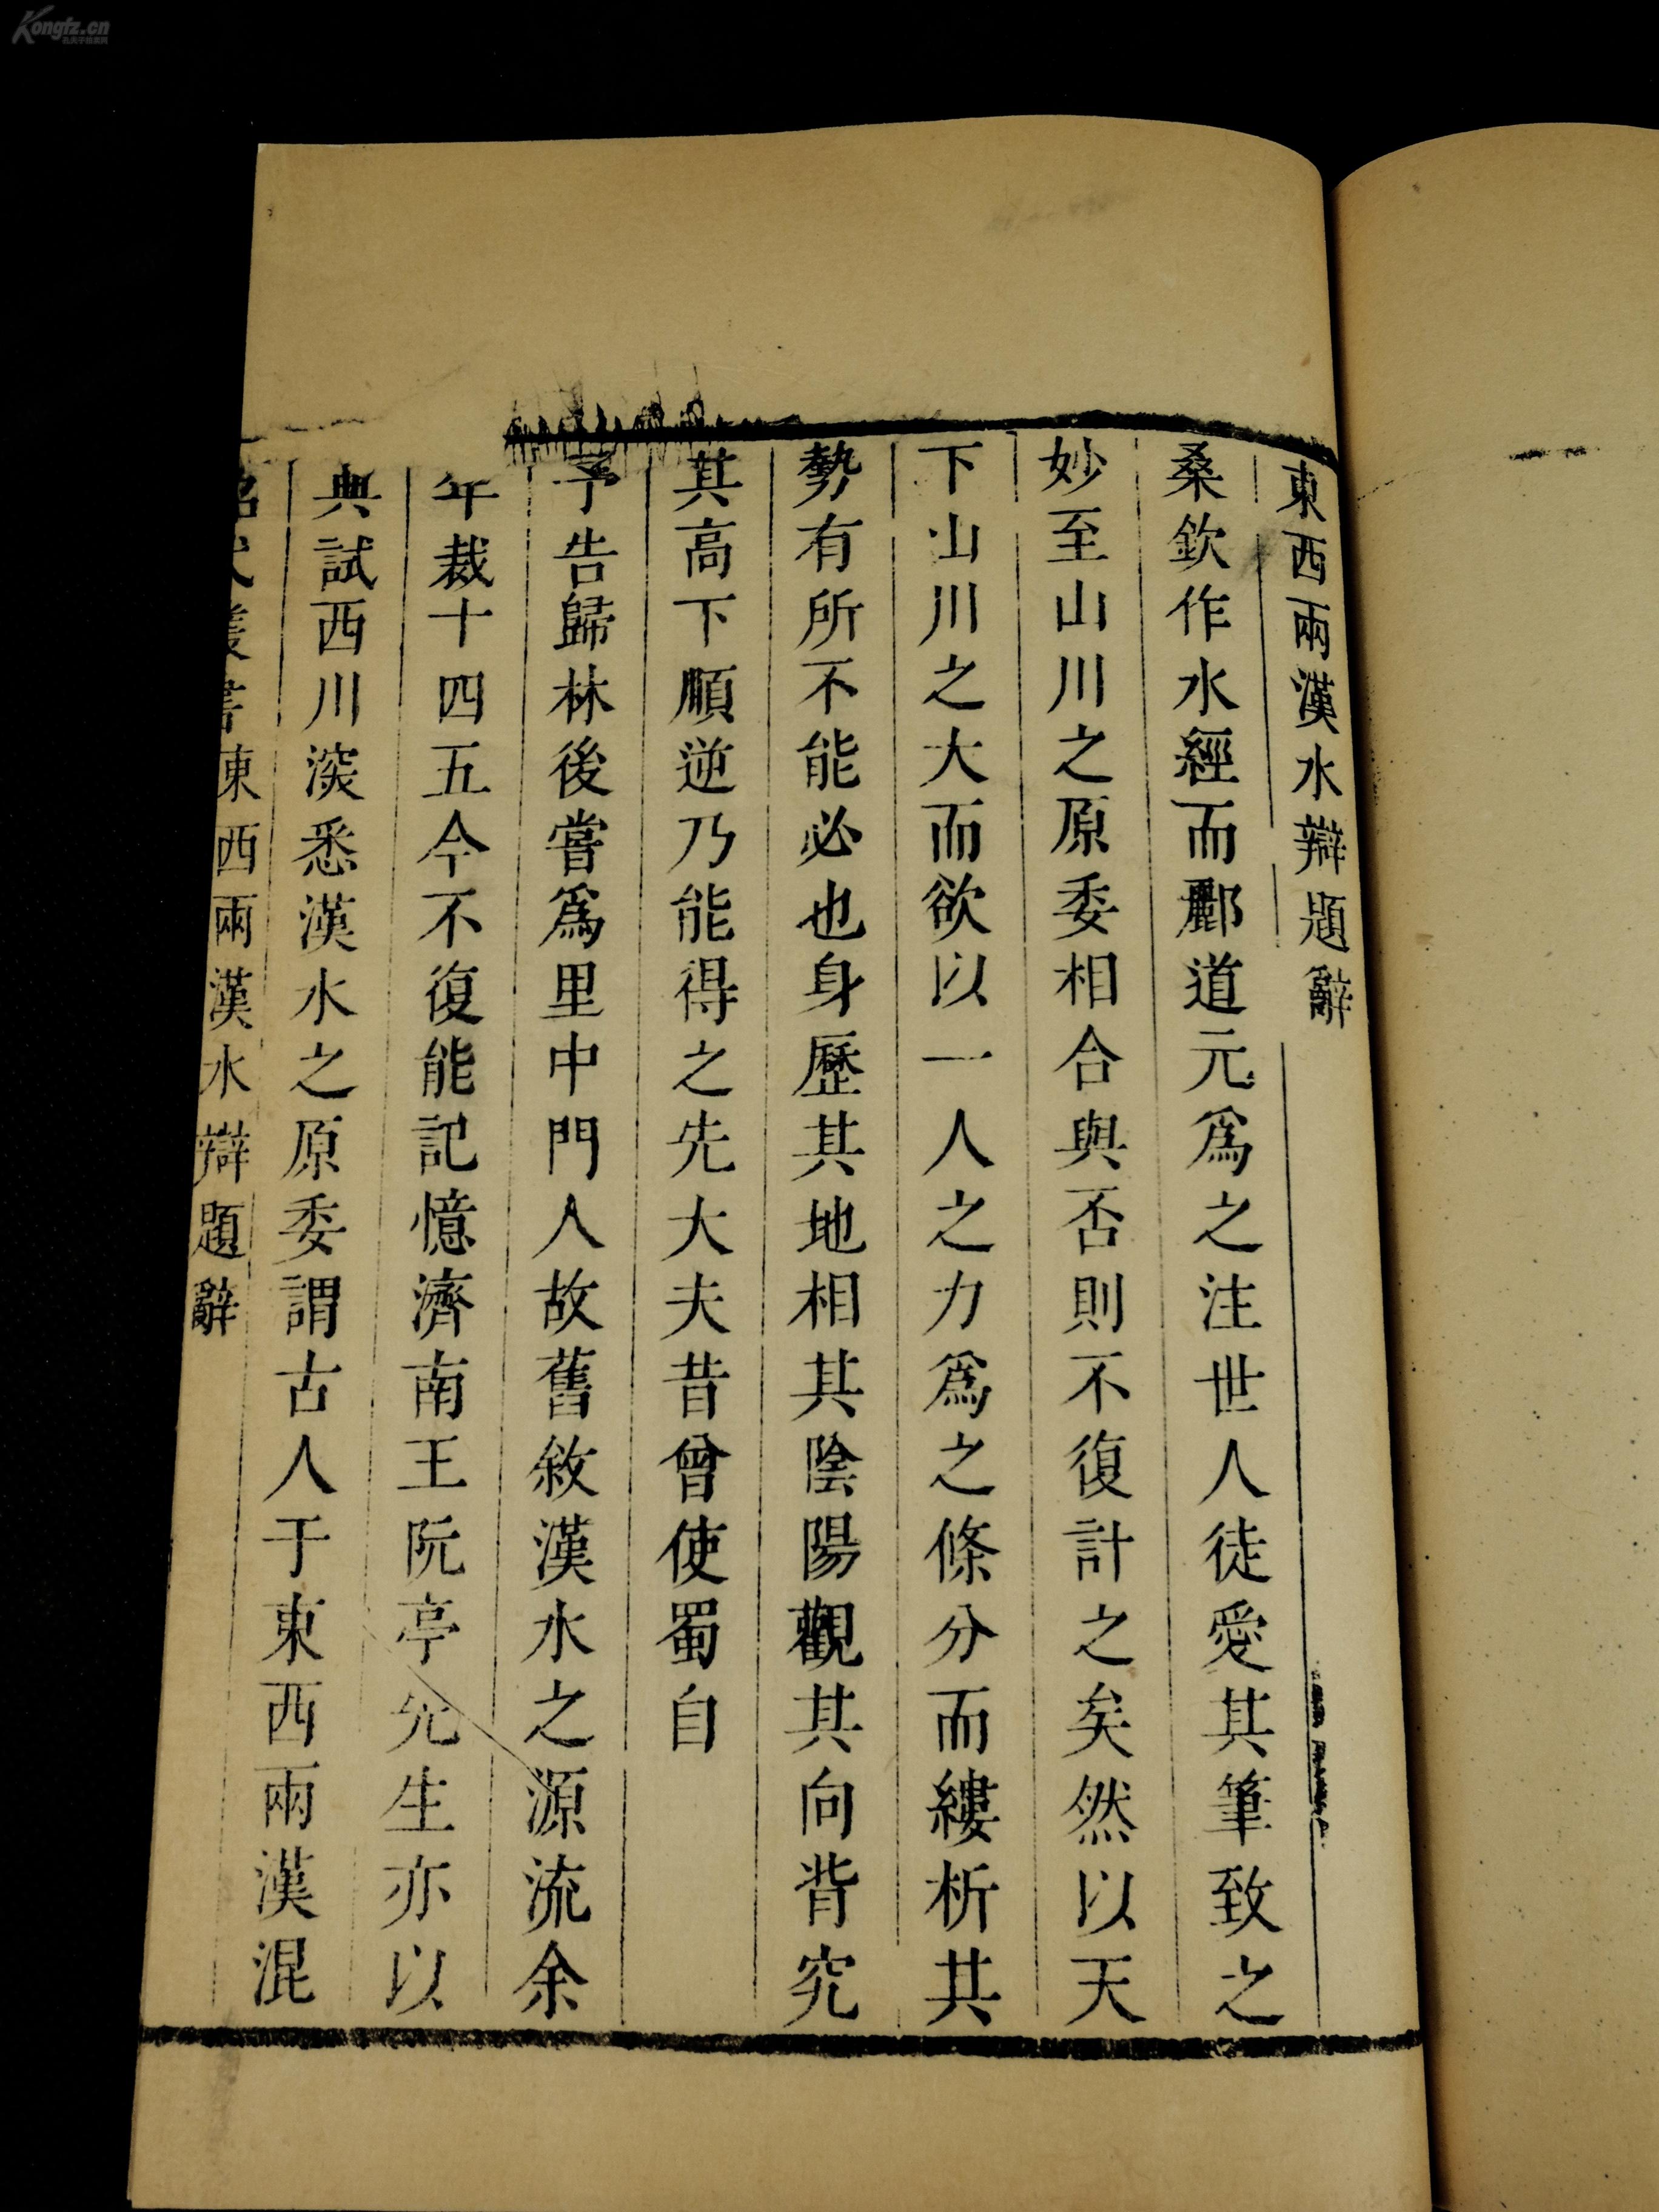 東西兩漢水辯題辭
桑欽作水經而酈道元爲之注世人徒愛其筆致之
妙至山川之原委相合與否則不復計之矣然以天
下山川之大而欲以一人之力爲之條分而縷析其
勢有所不能必也身歷其地相其陰陽觀其向背究
其高下順逆乃能得之先大夫昔曾使蜀自
予告歸林後嘗爲里中門人故舊敘漢水之源流余
年裁十四五今不復能記憶濟南王阮亭先生亦以
典試西川深悉漢水之原委謂古人于東西兩漢混
昭代叢書 東西兩漢水辯題辭
Kongfz.cn